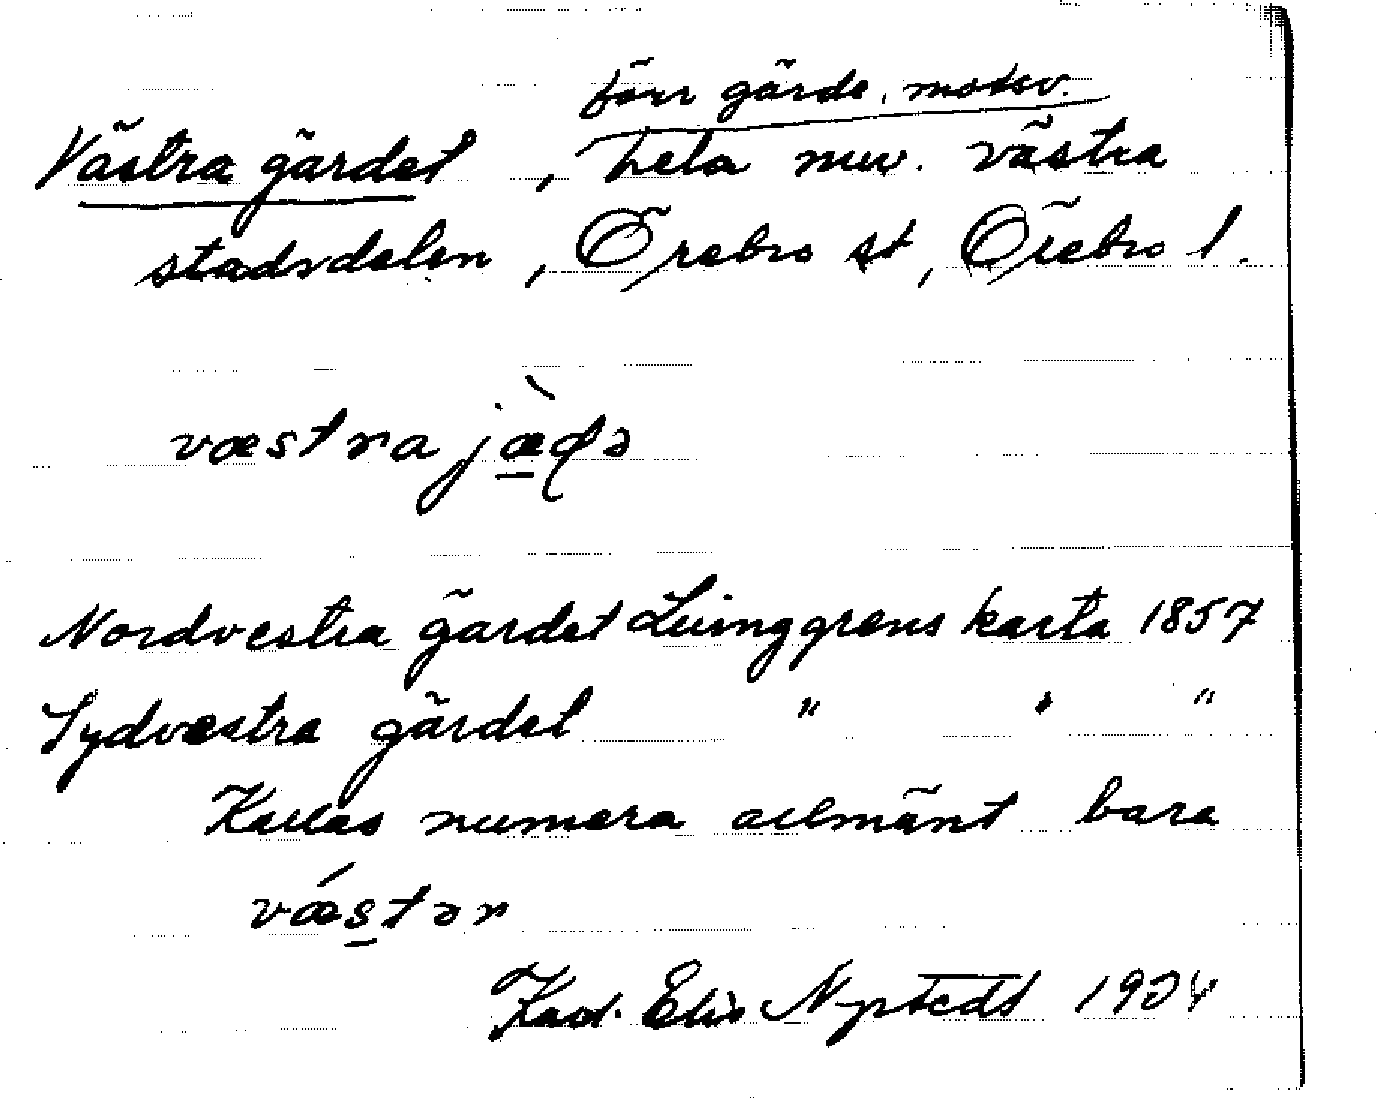 förr gärde, motsv.
Västra gärdet, hela nuv. västra
stadsdelen, Örebro st, Örebro l.
væstra jæ̀ḍə
Nordvestra gärdet Ljunggrens karta 1857
Sydvestra gärdet " " "
Kallas numera allmänt bara
vǽstər
Kad. Elis 1924